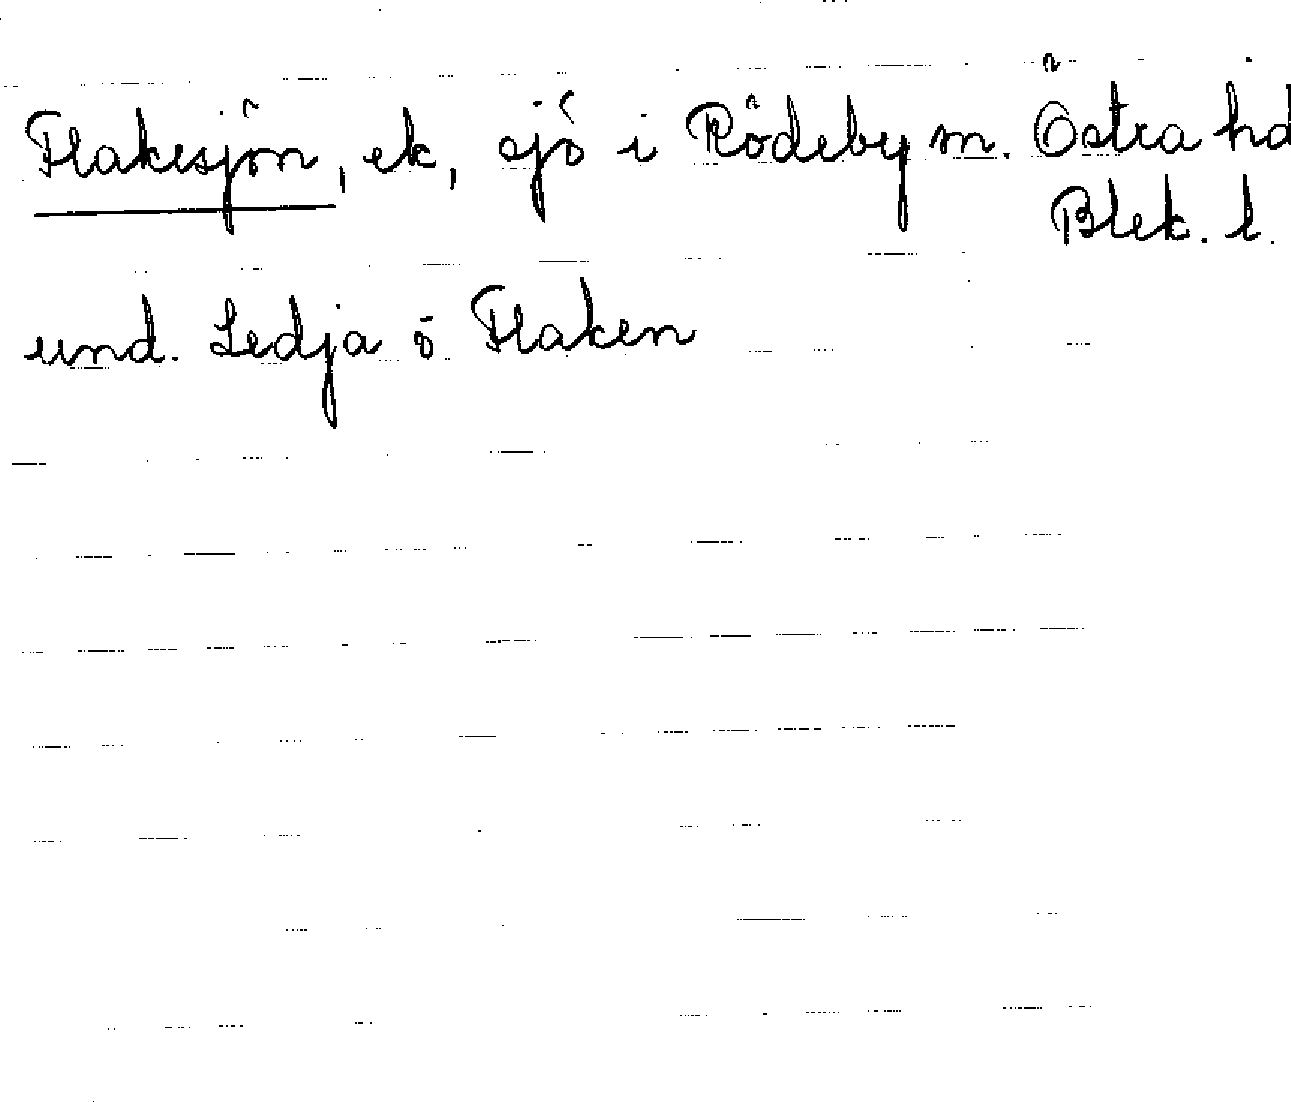 Flakesjön, ek, sjö i Rödeby sn. Östra hd
Blek. l.
und. Sedja ö Flaken